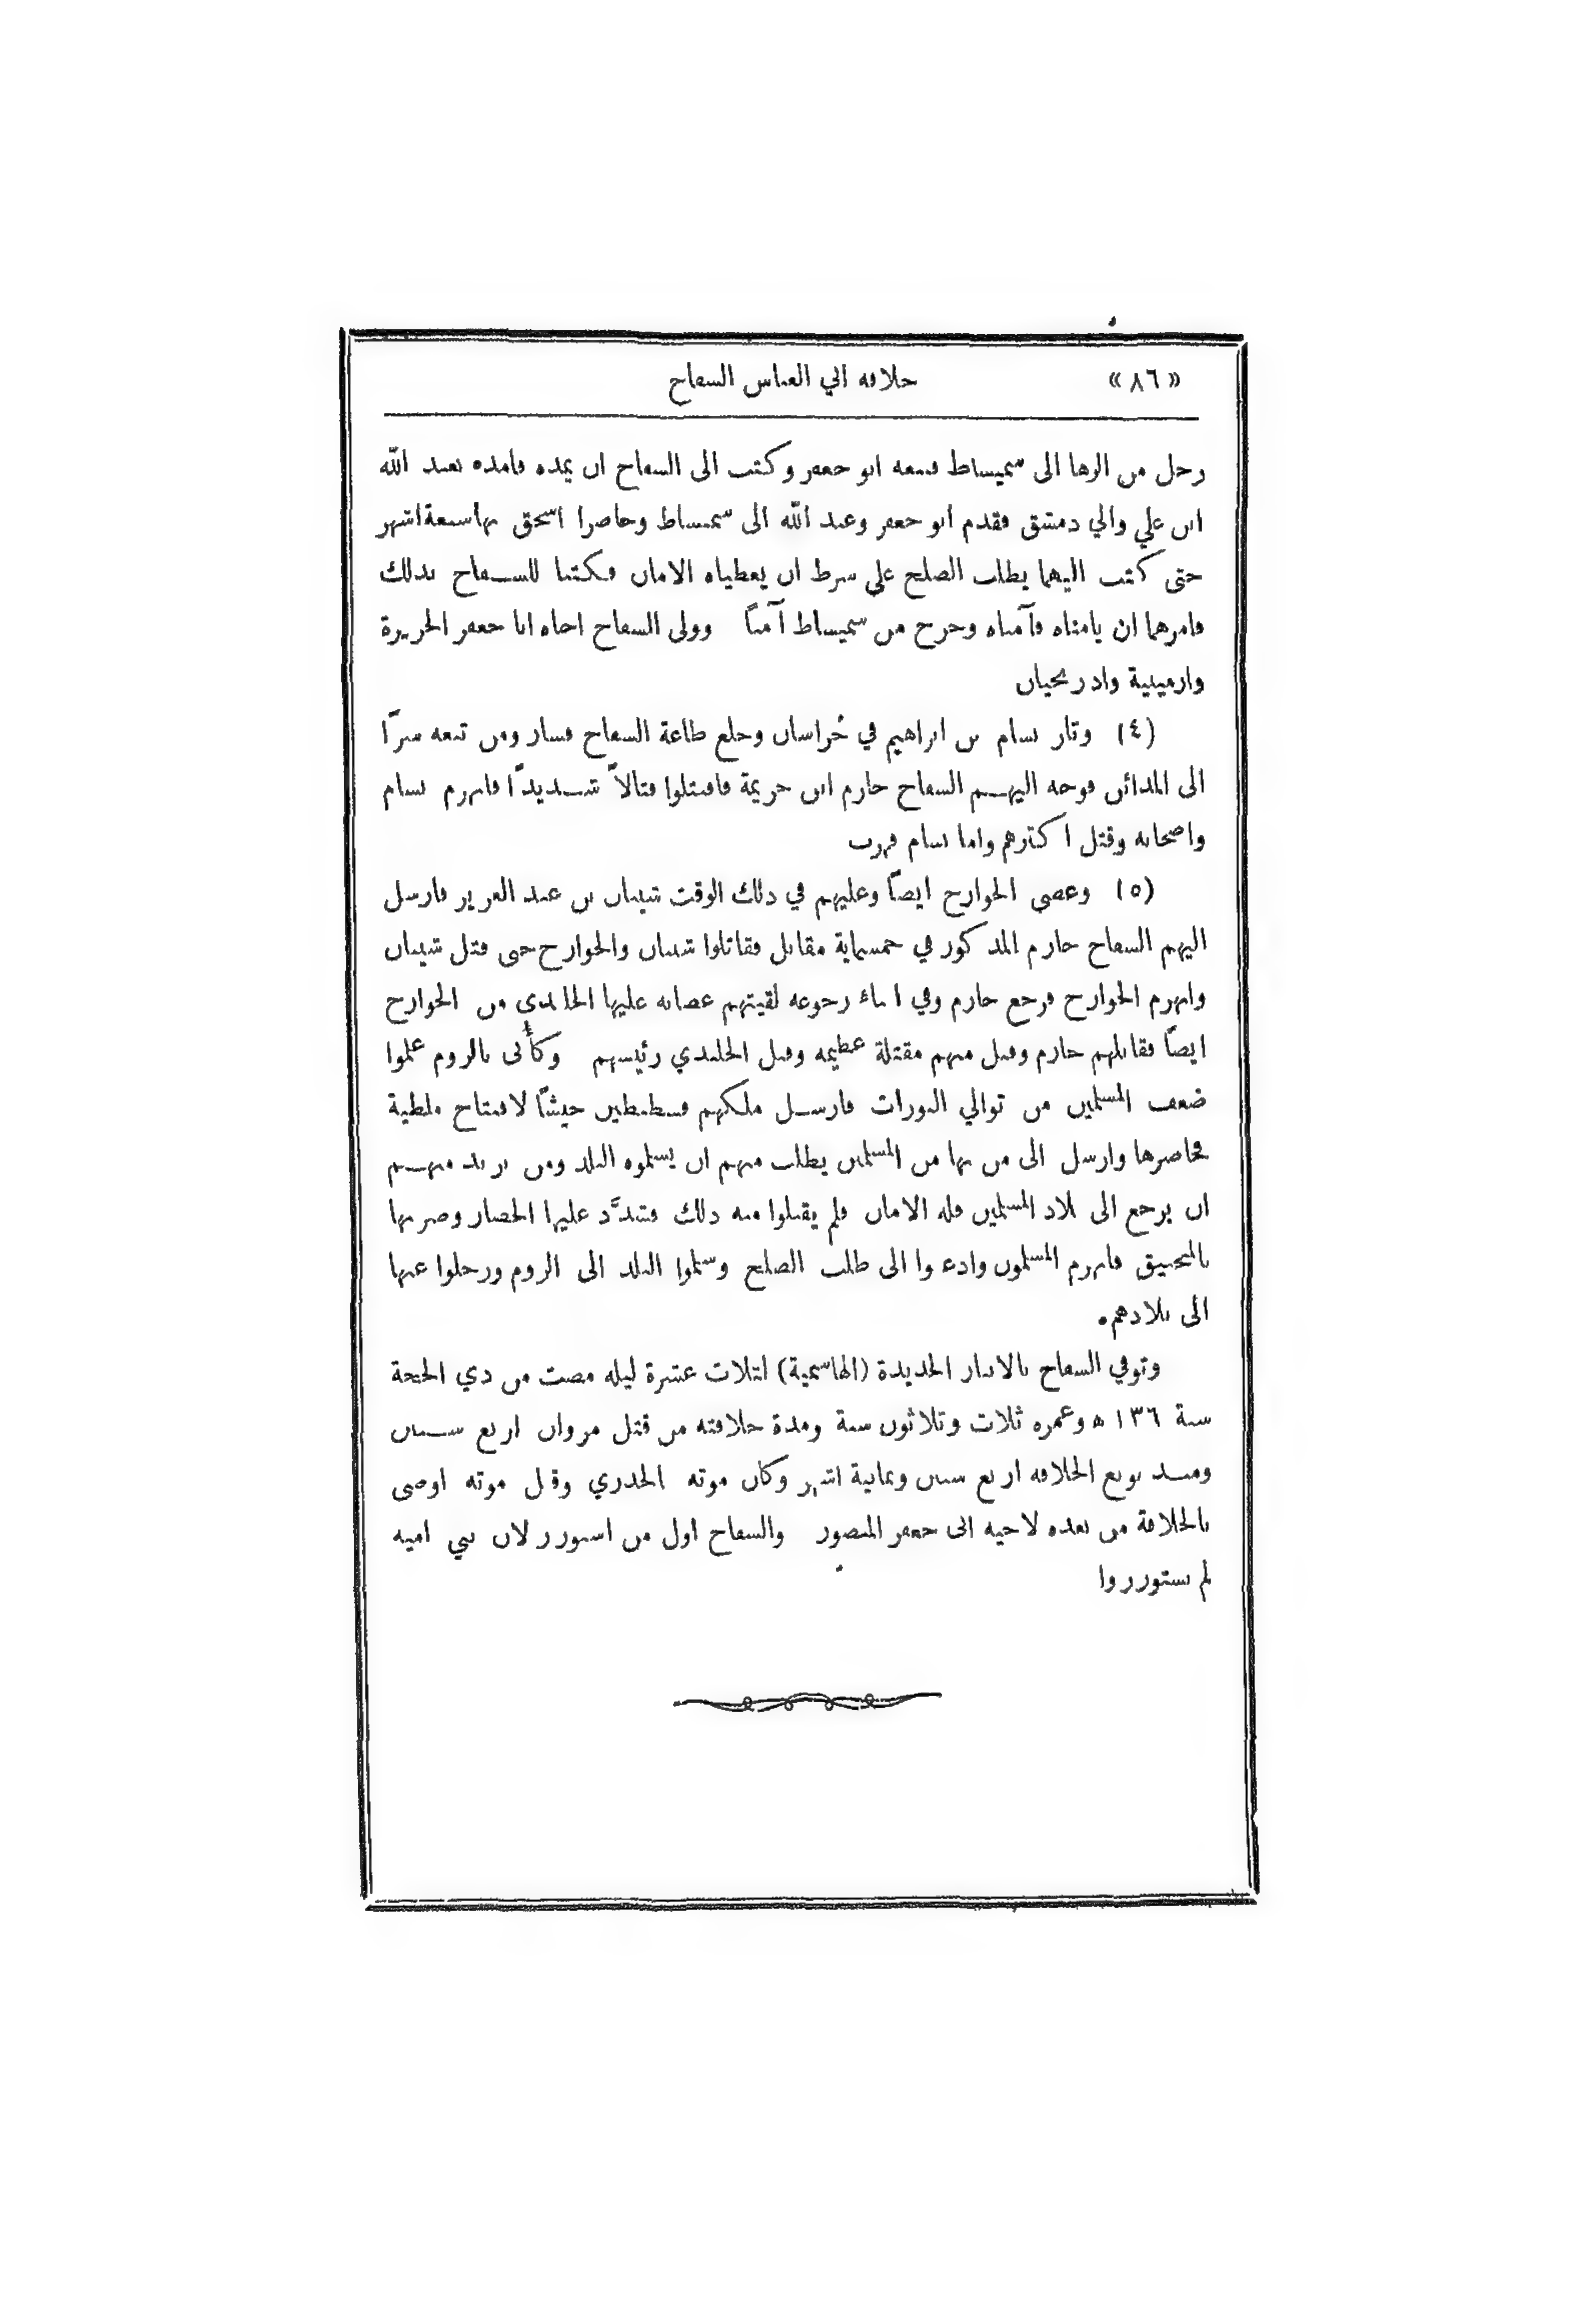 «٨٦» خلافة ابي العباس السفاح
رحل من الرها الى سميساط فتبعه ابو جعفر وكتب الى السفاح ان يمده فامده بعبد الله
ابن علي والي دمشق فقدم ابو جعفر وعبد الله الى سميساط وحاصرا اسحق بها سبعة اشهر
حتى كتب اليهما يطلب الصلح على شرط ان يعطياه الامان فكتبا للسفاح بذلك
فامرهما ان يامناه فآمناه وخرج من سميساط آمناً وولى السفاح اخاه ابا جعفر الجزيرة
وارمينية واذربيجان
(٤) وثار بسام بن ابراهيم في خراسان وخلع طاعة السفاح فسار ومن تبعه سرًّا
الى المدائن فوجه اليهم السفاح خازم ابن خزيمة فاقتتلوا قتالاً شديدًا فانهزم بسام
واصحابه وقتل اكثرهم واما بسام فهرب
(٥) وعصى الخوارج ايضًا وعليهم في ذلك الوقت شيبان بن عبد العزيز فارسل
اليهم السفاح خازم المذكور في خمسماية مقاتل فقاتلوا شيبان والخوارج حتى قتل شيبان
وانهزم الخوارج فرجع خازم وفي اثناء رجوعه لقيتهم عصابة عليها الجلندى من الخوارج
ايضًا فقاتلهم خازم وقتل منهم مقتلة عظيمة وقتل الجلندي رئيسهم وكأني بالروم علموا
ضعف المسلمين من توالي الثورات فارسل ملكهم قسطنطين جيشًا لافتتاح ملطية
فحاصرها وارسل الى من بها من المسلمين يطلب منهم ان يسلموه البلد ومن يريد منهم
ان يرجع الى بلاد المسلمين فله الامان فلم يقبلوا منه ذلك فشدَّد عليها الحصار وضربها
بالمنجنيق فانهزم المسلمون وادعوا الى طلب الصلح وسلموا البلد الى الروم ورحلوا عنها
الى بلادهم.
وتوفي السفاح بالانبار الجديدة (الهاشمية) لثلاث عشرة ليلة مضت من ذي الحجة
سنة ١٣٦ ه وعمره ثلاث وثلاثون سنة ومدة خلافته من قتل مروان اربع سنين
ومنذ بويع الخلافة اربع سنين وثمانية اشهر وكان موته بالجدري وقبل موته اوصى
بالخلافة من بعده لاخيه ابي جعفر المنصور والسفاح اول من استوزر لان بني امية
لم يستوزروا